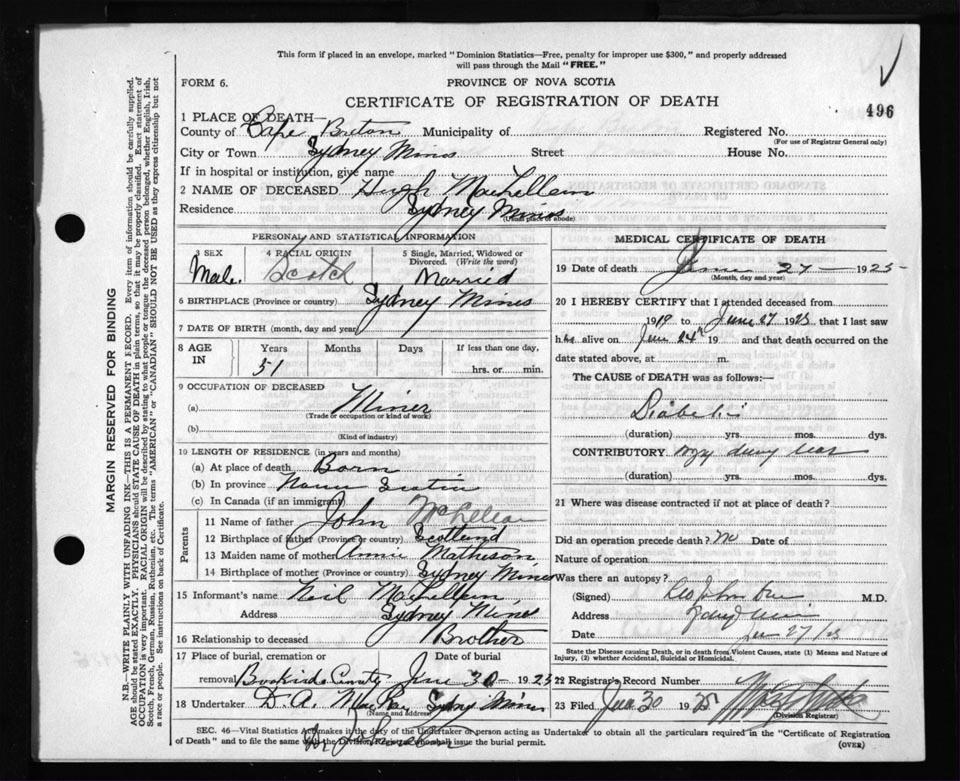 This form if placed in an envelope, marked "Dominion Statistics—Free, penalty for improper use $300," and properly addressed
will pass through the Mail "FREE."
FORM 6.
PROVINCE OF NOVA SCOTIA
CERTIFICATE OF REGISTRATION OF DEATH
496
1 PLACE OF DEATH—
County of Cape Breton Municipality of Registered No.
(For use of Registrar General only)
City or Town Sydney Mines Street House No.
If in hospital or institution, give name
2 NAME OF DECEASED Hugh MacLellan
Residence Sydney Mines
(Usual place of abode)
PERSONAL AND STATISTICAL INFORMATION
3 SEX
Male
4 RACIAL ORIGIN
Scotch
5 Single, Married, Widowed or
Divorced. (Write the word)
Married
6 BIRTHPLACE (Province or country) Sydney Mines
7 DATE OF BIRTH (month, day and year)
8 AGE
IN
Years Months Days If less than one day,
51 hrs. or min.
9 OCCUPATION OF DECEASED
(a) Miner
(Trade or occupation or kind of work)
(b)
(Kind of industry)
10 LENGTH OF RESIDENCE (in years and months)
(a) At place of death Born
(b) In province Nova Scotia
(c) In Canada (if an immigrant)
Parents
11 Name of father John McLellan
12 Birthplace of father (Province or country) Scotland
13 Maiden name of mother Annie Matheson
14 Birthplace of mother (Province or country) Sydney Mines
15 Informant's name Neil MacLellan
Address Sydney Mines
16 Relationship to deceased Brother
17 Place of burial, cremation or Date of burial
removal June 30 1925
18 Undertaker D. A. MacRae Sydney Mines
(Name and address)
MEDICAL CERTIFICATE OF DEATH
19 Date of death June 27 — 1925
(Month, day and year)
20 I HEREBY CERTIFY that I attended deceased from
1919 to June 27 1925 that I last saw
him alive on June 24th 19 and that death occurred on the
date stated above, at m.
The CAUSE of DEATH was as follows:—
Diabetes
(duration) yrs. mos. dys.
CONTRIBUTORY
(duration) yrs. mos. dys.
21 Where was disease contracted if not at place of death?
Did an operation precede death? No Date of
Nature of operation
Was there an autopsy?
(Signed) M.D.
Address
Date June 27/25
State the Disease causing Death, or in death from Violent Causes, state (1) Means and Nature of
Injury, (2) whether Accidental, Suicidal or Homicidal.
22 Registrar's Record Number
23 Filed Jun 30 1925
(Division Registrar)
SEC. 46—Vital Statistics Act makes it the duty of the Undertaker or person acting as Undertaker to obtain all the particulars required in the "Certificate of Registration
of Death" and to file the same with the Division Registrar who shall issue the burial permit.
(OVER)
MARGIN RESERVED FOR BINDING
N.B.—WRITE PLAINLY WITH UNFADING INK—THIS IS A PERMANENT RECORD. Every item of information should be carefully supplied.
AGE should be stated EXACTLY. PHYSICIANS should STATE CAUSE OF DEATH in plain terms, so that it may be properly classified. Exact statement of
OCCUPATION is very important. RACIAL ORIGIN will be described by stating to what people or tongue the deceased person belonged, whether English, Irish,
Scotch, French, German, Russian, Ruthenian, etc. The terms "AMERICAN" or "CANADIAN" SHOULD NOT BE USED as they express citizenship but not
a race or people. See instructions on back of Certificate.